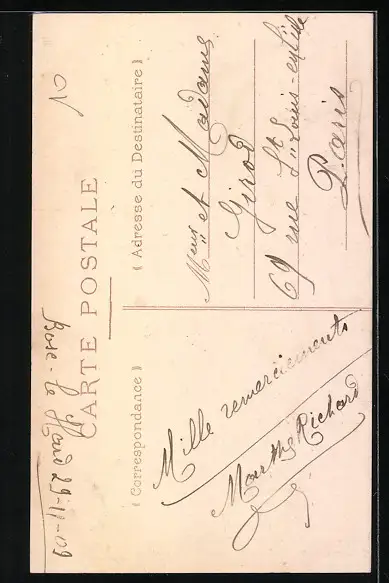 CARTE POSTALE
( Correspondance )
( Adresse du Destinataire )
Mille remerciements
Marthe Richard
et Madame
Girod
69 rue St Louis-en l'isle
Paris
29-11-09
10